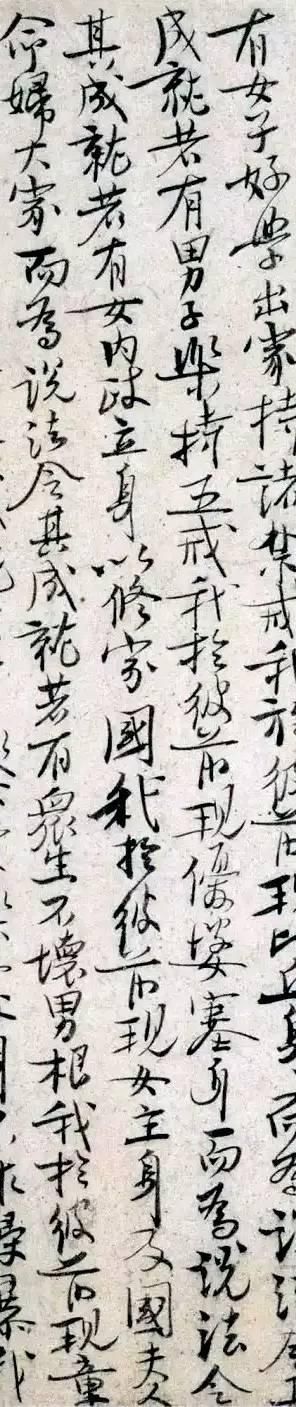 有女子好學出家持諸禁戒我於彼前現比丘身而為說法令其
成就若有男子樂持五戒我於彼前現優婆塞身而為說法令
其成就若有女內政立身以修家國我於彼前現女主身及國夫人
命婦大家而為說法令其成就若有眾生不壞男根我於彼前現童